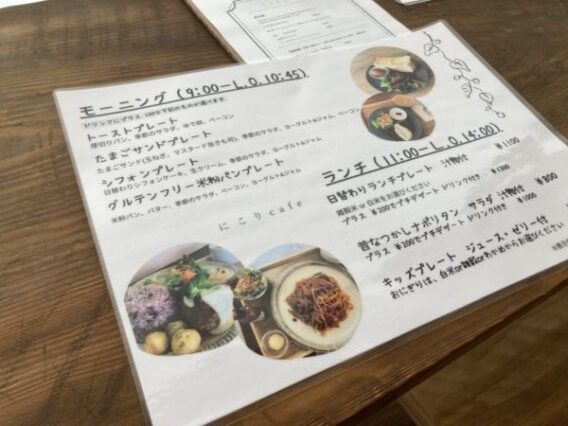 モーニング (9:00ーL.O.10:45)
ドリンクにプラス 100を下記のものが選べます
トーストプレート
厚切りパン、季節のサラダ、ゆで卵、ベーコン
たまごサンドプレート
たまごサンド(玉ねぎ、マスタード抜きも可)、季節のサラダ、ヨーグルト&ジャム、ベーコン
シフォンプレート
日替わりシフォンケーキ、生クリーム、季節のサラダ、ヨーグルト&ジャム
グルテンフリー米粉パンプレート
米粉パン、バター、季節のサラダ、ベーコン、ヨーグルト&ジャム
にこり cafe
ランチ (11:00ーL.O.14:00)
日替わりランチプレート 汁物付 ¥1100
雑穀米 or 白米をお選びください
プラス ¥200でプチデザート ドリンク付き ¥1300
昔なつかしナポリタン サラダ 汁物付 ¥800
プラス ¥200でプチデザート ドリンク付き ¥1000
キッズプレート ジュース・ゼリー付
おにぎりは、白米or雑穀orわかめからお選びください